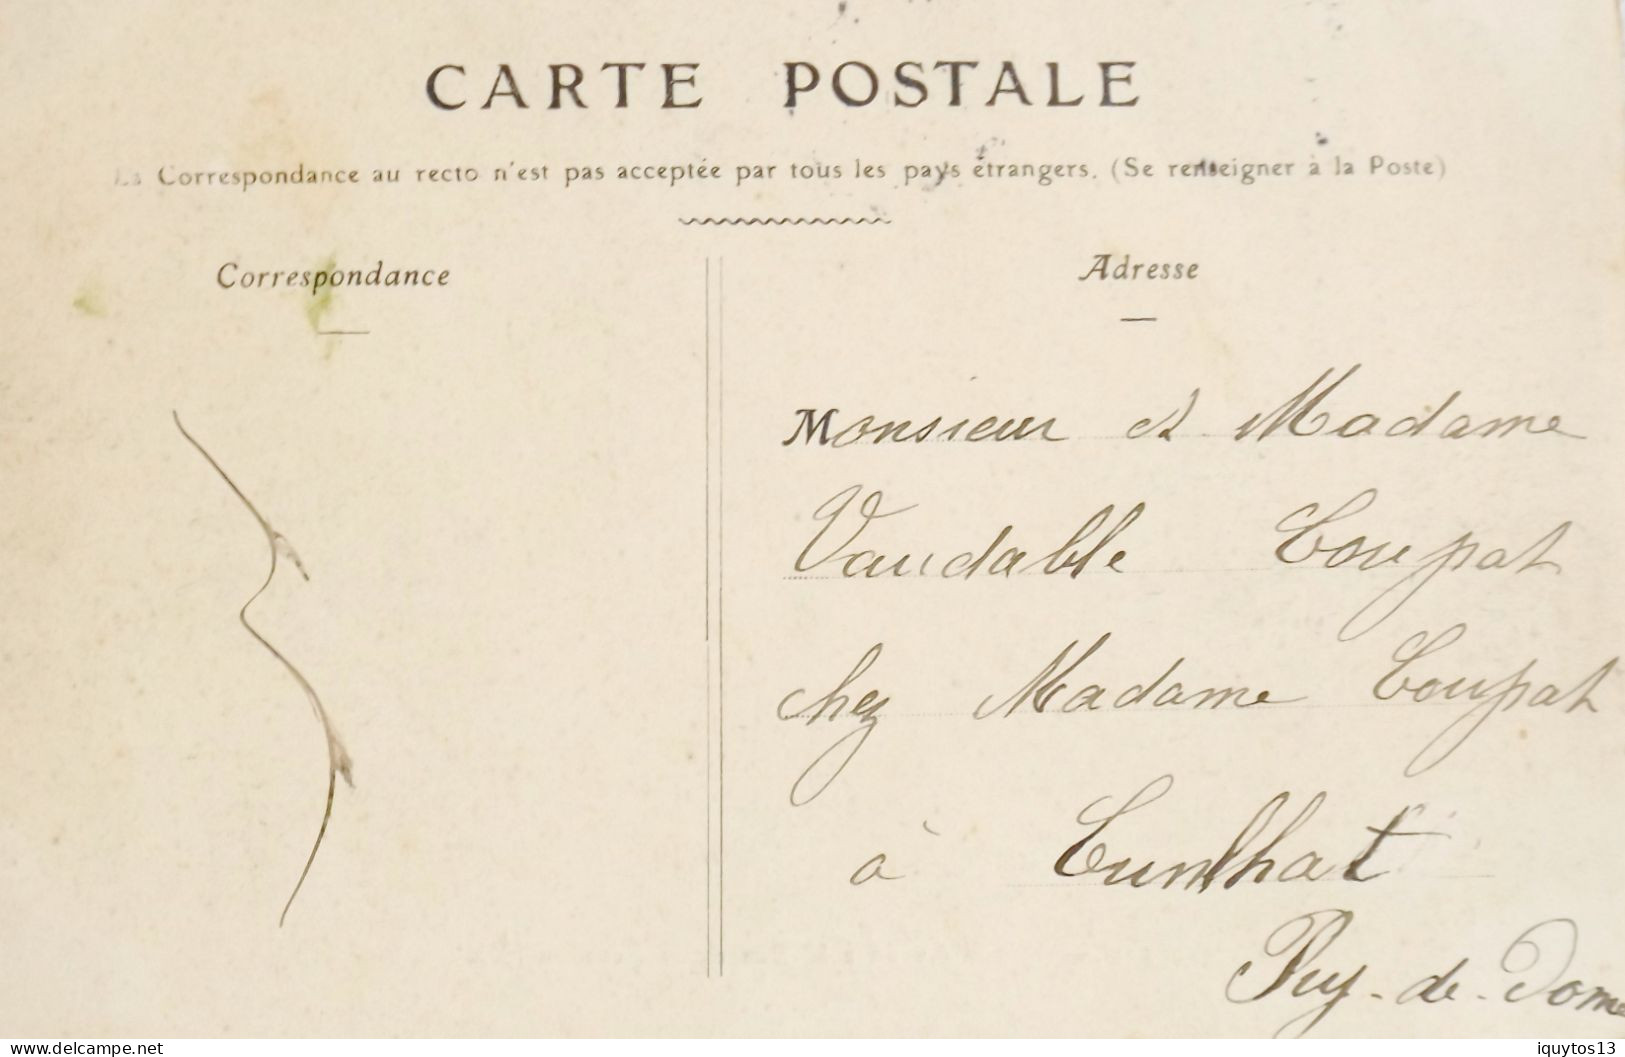 CARTE POSTALE
La Correspondance au recto n'est pas acceptée par tous les pays étrangers. (Se renseigner à la Poste)
Correspondance
Adresse
Monsieur et Madame
Vaudable Coupat
chez Madame Coupat
à Cunlhat
Puy-de-Dome
www.delcampe.net
iquytos13